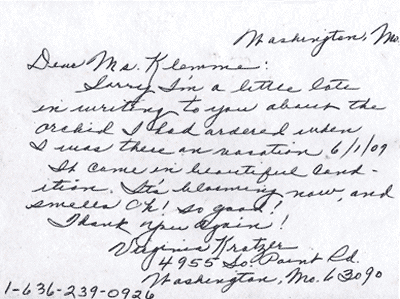 Washington, Mo.
Dear Ms. Klemme:
Sorry I'm a little late
in writing to you about the
orchid I had ordered when
I was there on vacation 6/1/09
It came in beautiful cond-
ition. It's blooming now, and
smells Oh! So good!
Thank you again!
Virginia Kratzer
4955 So. Point Rd.
Washington, Mo. 63090
1-636-239-0926